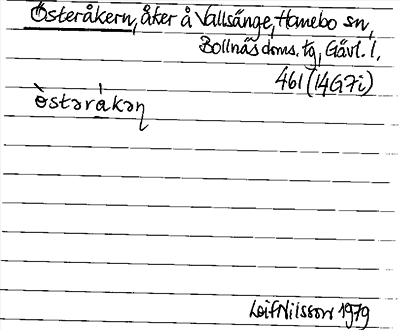 Österåkern, åker å Vallsänge, Hamebo sn,
Bollnäs doms. tg, Gävl. l.
461 (14G7i)
ὸstərákəɳ
Leif Nilsson 1979